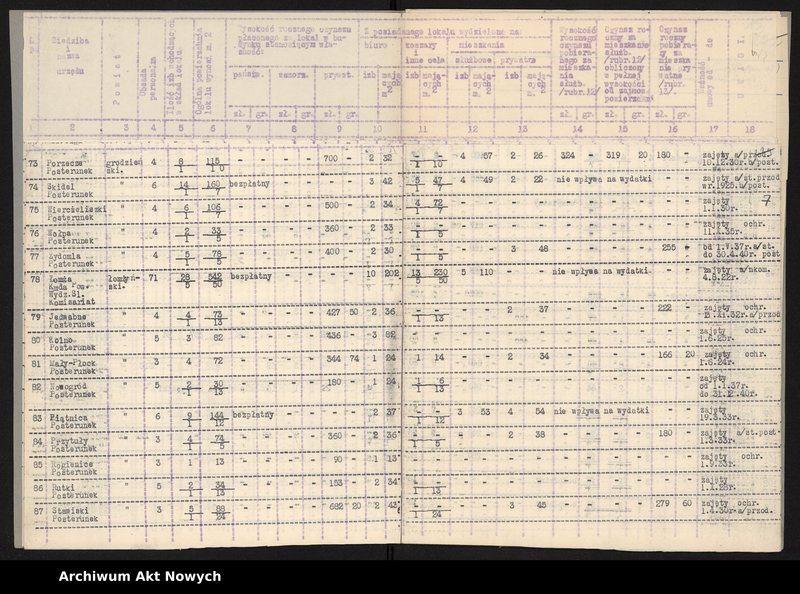 Siedziba i nazwa urzędu
Powiat
Obsada personalna
Ogólna powierzchnia lokalu wynosi m. 2
Wysokość rocznego czynszu płaconego za lokal w budynku stanowiącym własność:
państw. samorz. prywat.
Z posiadanego lokalu wydzielono na:
biuro koszary i inne cele mieszkania
służbowe prywatne
izb mających m.2 izb mających m.2 izb mających m.2 izb mających m.2
Wysokość rocznego czynszu pobieranego za mieszkania służb. /rubr.12/
zł. gr. zł. gr. zł. gr. zł. gr. zł. gr. zł. gr.
1 2 3 4 5 6 7 8 9 10 11 12 13 14 15 16 17 18
73 Porzecze Posterunek grodzieński. 4 8/1 115/10 - - - - 700 - 2 32 -/1 -/10 4 57 2 26 324 - 319 20 180 - zajęty a/przed. 10.12.30r.b/post.
74 Skidel Posterunek " 6 14/1 160/7 bezpłatny - - - - 3 42 5/1 47/7 4 49 2 22 nie wpływa na wydatki - - zajęty a/st.przod wr.1925.b/post.
75 Wiercieliszki Posterunek " 4 6/1 106/7 - - - - 500 - 2 34 4/1 72/7 - - - - - - - - - - zajęty 1.1.30r.
76 Wołpa Posterunek " 4 2/1 33/5 - - - - 360 - 2 33 -/1 -/5 - - - - - - - - - - zajęty ochr.
77 Żydomla Posterunek " 4 5/1 78/5 - - - - 400 - 2 30 -/1 -/5 - - 3 48 - - - - 255 - od 1.V.37r.a/st. do 30.4.40r. post
78 Łomża Kmda Pow. Wydz.Śl. Komisariat łomżyński. 71 28/5 542/50 bezpłatny - - - - 10 202 13/5 230/50 5 110 - - nie wpływa na wydatki - - zajęty a/nkom. 4.8.22r.
79 Jedwabne Posterunek " 4 4/1 73/13 - - - - 427 50 2 36 -/1 -/13 - - 2 37 - - - - 222 - zajęty ochr.
80 Kolno Posterunek " 5 3 82 - - - - 436 - 3 82 - - - - - - - - - - - - zajęty ochr. 1.6.25r.
81 Mały-Płock Posterunek " 3 4 72 - - - - 344 74 1 24 1 14 - - 2 34 - - - - 166 20 zajęty ochr. 1.6.24r.
82 Nowogród Posterunek " 5 2/1 30/13 - - - - 180 - 1 24 1/1 6/13 - - - - - - - - - - zajęty od 1.1.37r. do 31.12.40r.
83 Piątnica Posterunek " 6 9/1 144/12 bezpłatny - - - - 2 37 -/1 -/12 3 53 4 54 nie wpływa na wydatki - - zajęty 19.3.33r.
84 Przytuły Posterunek " 3 4/1 74/5 - - - - 360 - 2 36 -/1 -/5 - - 2 38 - - - - 180 - zajęty a/st.post 1.3.33r.
85 Rogienice Posterunek " 3 1 13 - - - - 90 - 1 13 - - - - - - - - - - - - zajęty ochr. 1.9.33r.
86 Rutki Posterunek " 5 2/1 34/13 - - - - 153 - 2 34 -/1 -/13 - - - - - - - - - - zajęty
87 Stawiski Posterunek " 3 5/1 88/24 - - - - 682 20 2 43 -/1 -/24 - - 3 45 - - - - 279 60 zajęty ochr. 1.4.30r-a/przod.
Archiwum Akt Nowych